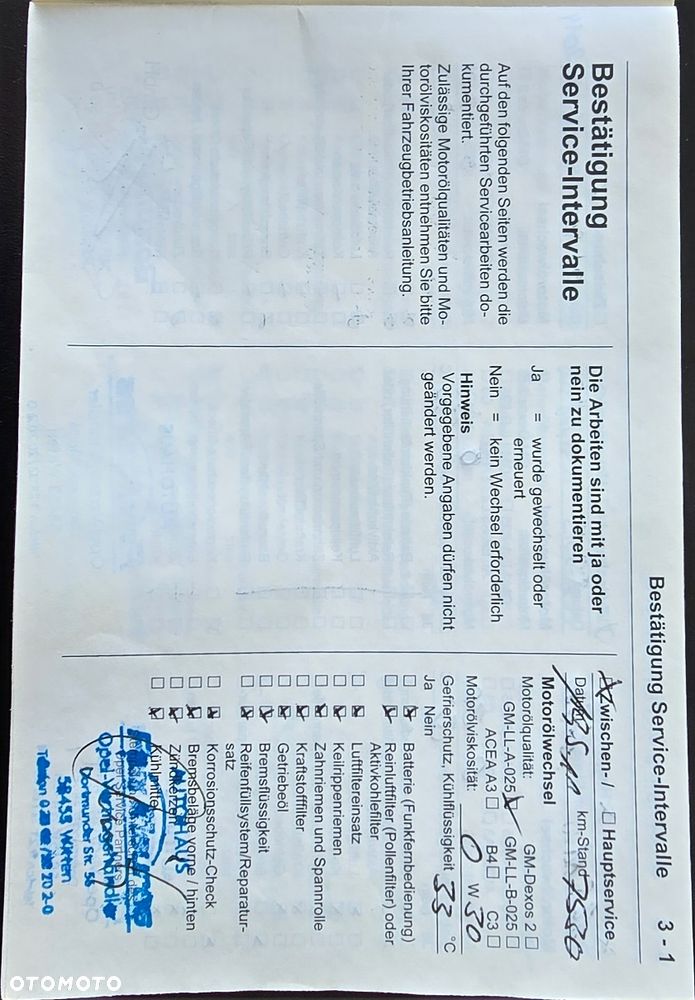 Bestätigung Service-Intervalle 3 - 1
Bestätigung
Service-Intervalle
Auf den folgenden Seiten werden die
durchgeführten Servicearbeiten do-
kumentiert.
Zulässige Motorölqualitäten und Mo-
torölviskositäten entnehmen Sie bitte
Ihrer Fahrzeugbetriebsanleitung.
Die Arbeiten sind mit ja oder
nein zu dokumentieren
Ja = wurde gewechselt oder
erneuert
Nein = kein Wechsel erforderlich
Hinweis
Vorgegebene Angaben dürfen nicht
geändert werden.
Zwischen- / Hauptservice
km-Stand
Motorölwechsel
Motorölqualität: GM-Dexos 2
GM-LL-A-025 GM-LL-B-025
ACEA A3 B4 C3
Motorölviskosität: 0 W 30
Gefrierschutz, Kühlflüssigkeit 33 °C
Ja Nein
Batterie (Funkfernbedienung)
Reinluftfilter (Pollenfilter) oder
Aktivkohlefilter
Luftfiltereinsatz
Keilrippenriemen
Zahnriemen und Spannrolle
Kraftstofffilter
Getriebeöl
Bremsflüssigkeit
Reifenfüllsystem/Reparatur-
satz
Korrosionsschutz-Check
Bremsbeläge vorne / hinten
Zündkerzen
Kühlmittel
AUTOHAUS
Opel-Vertragshändler
Dortmunder Str. 56
58453 Witten
OTOMOTO